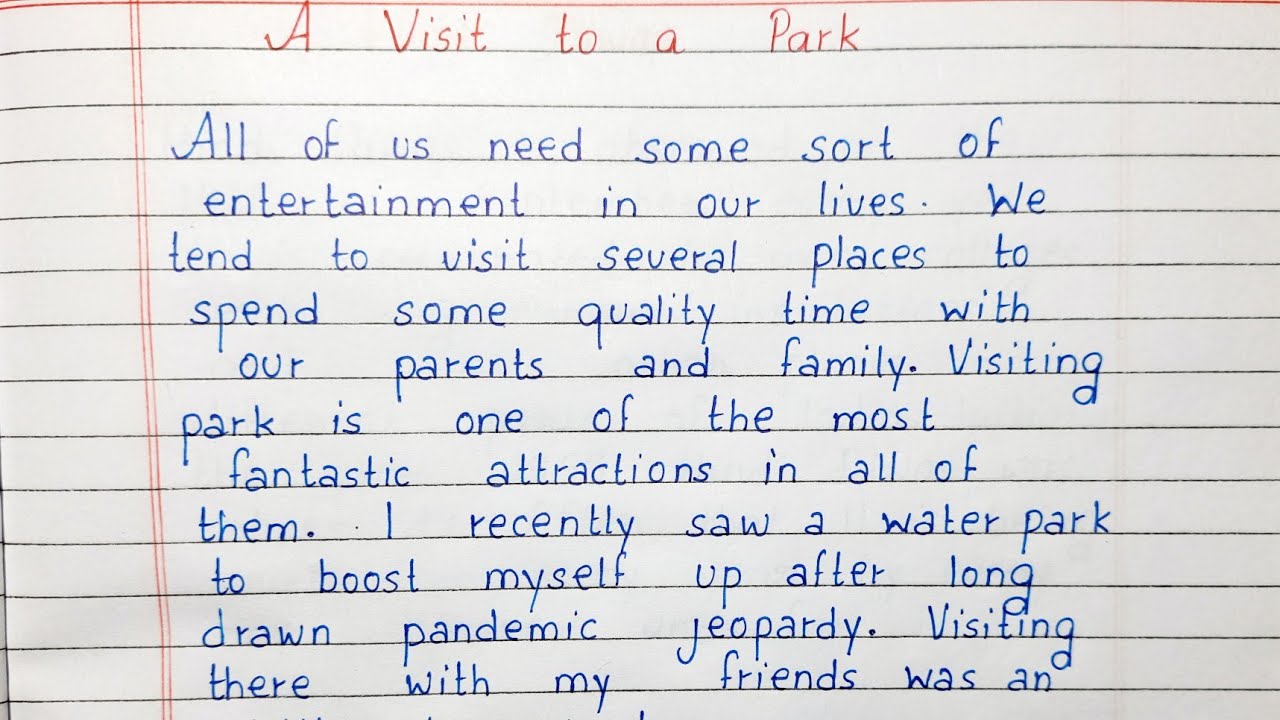 A Visit to a Park
All of us need some sort of
entertainment in our lives. We
tend to visit several places to
spend some quality time with
our parents and family. Visiting
park is one of the most
fantastic attractions in all of
them. I recently saw a water park
to boost myself up after long
drawn pandemic jeopardy. Visiting
there with my friends was an